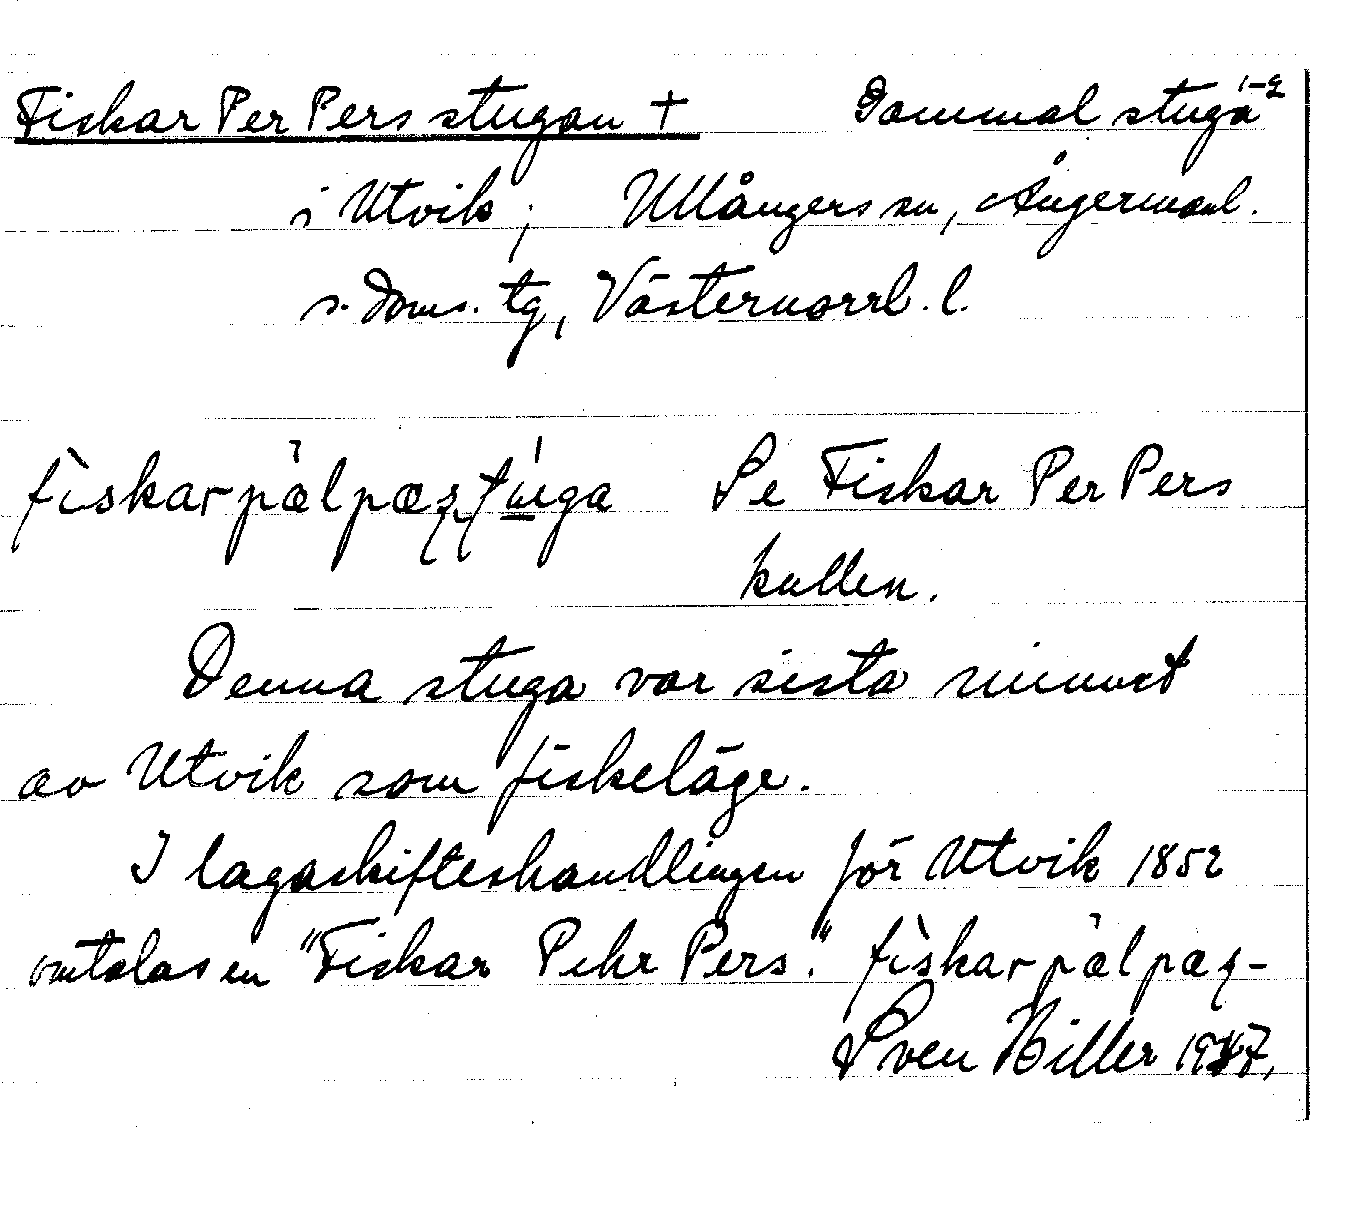 Fiskar Per Pers stugan + Gammal stuga 1-2
i Utvik; Ullångers sn, Ångermanl.
s. doms. tg, Västernorrl. l.
Se Fiskar Per Pers
kullen.
Denna stuga var sista minnet
av Utvik som fiskeläge.
I lagaskifteshandlingen för Utvik 1852
omtalas en "Fiskar Pehr Pers."
Sven Hiller